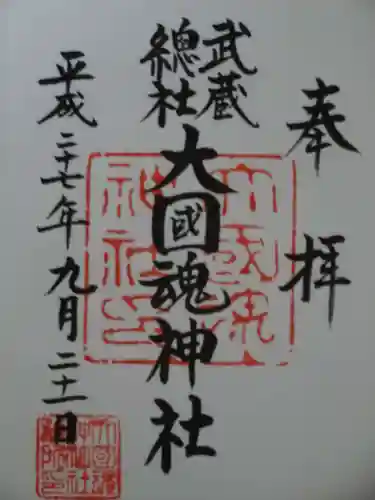 奉拝
武蔵
總社
大國魂神社
平成二十七年九月二十一日